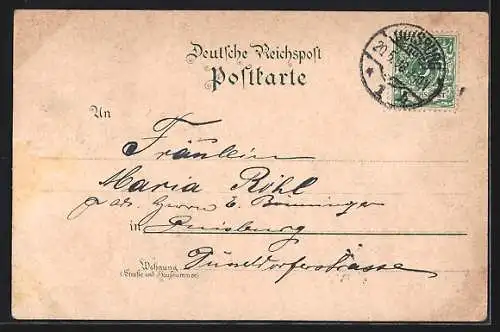 Deutsche Reichspost
Postkarte
An
Fräulein
Maria Röhl
p. adr. Herrn E. Bünninger
in Duisburg
Wohnung
(Straße und Hausnummer)
Düsseldorferstrasse
DUISBURG
20